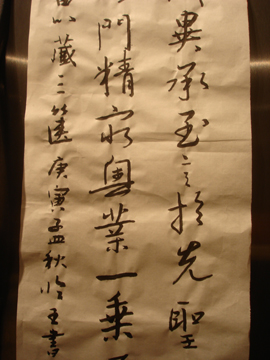 異承至言於先聖
門精窮奧業一乘
八藏三篋庚寅孟秋臨王書